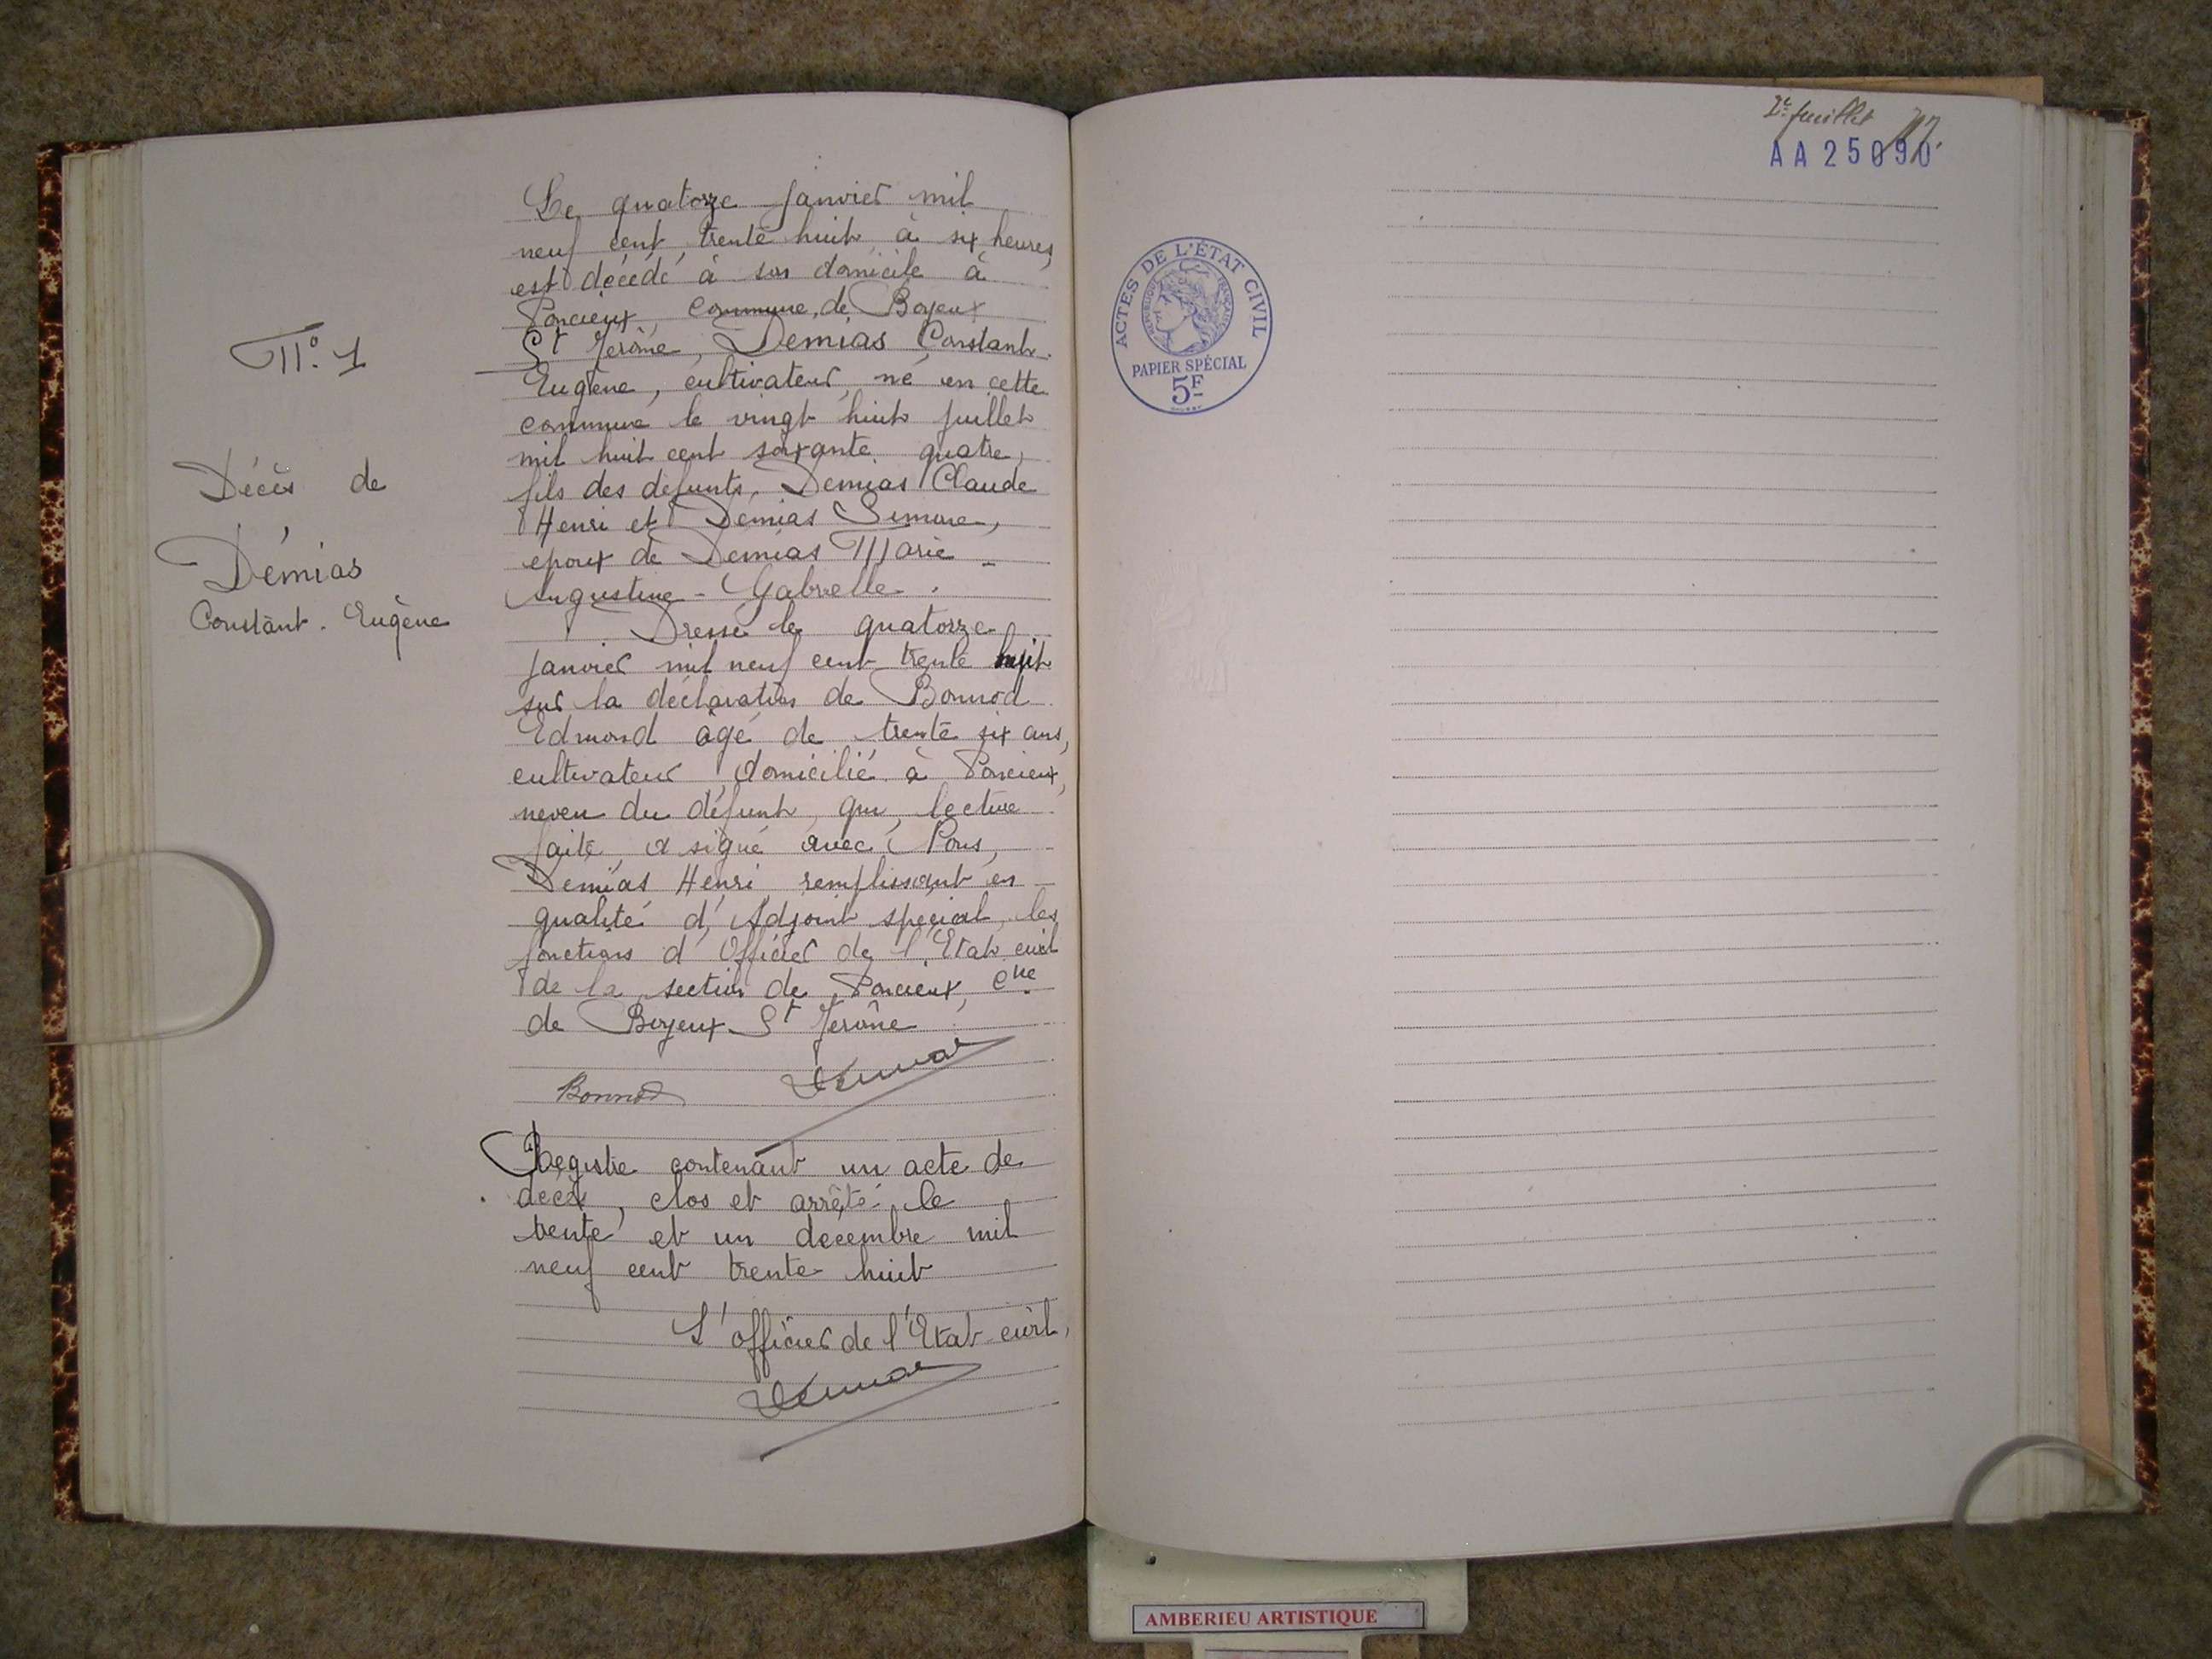 N° 1
Décès de
Démias
Constant. Eugène
Le quatorze janvier mil
neuf cent trente huit à six heures
est décédé à son domicile à
Poncieux, commune de Boyeux
St Jérôme, Demias Constant.
Eugène, cultivateur, né en cette
commune le vingt huit juillet
mil huit cent soixante quatre,
fils des défunts, Demias Claude
Henri et Demias Simone,
époux de Demias Marie -
Augustine - Gabrielle.
Dressé le quatorze
janvier mil neuf cent trente huit
sur la déclaration de Bonnod
Edmond âgé de trente six ans,
cultivateur, domicilié à Poncieux,
neveu du défunt, qui, lecture
faite, a signé avec Nous,
Demias Henri remplissant en
qualité d'Adjoint spécial, les
fonctions d'Officier de l'Etat civil
de la section de Poncieux, Cne
de Boyeux St Jérôme
Bonnod Demias
Registre contenant un acte de
décès, clos et arrêté le
trente et un decembre mil
neuf cent trente huit
L'officier de l'Etat civil,
Demias
2e feuillet
AA 25090
ACTES DE L'ÉTAT CIVIL
RÉPUBLIQUE FRANÇAISE
PAPIER SPÉCIAL
5F
AMBERIEU ARTISTIQUE